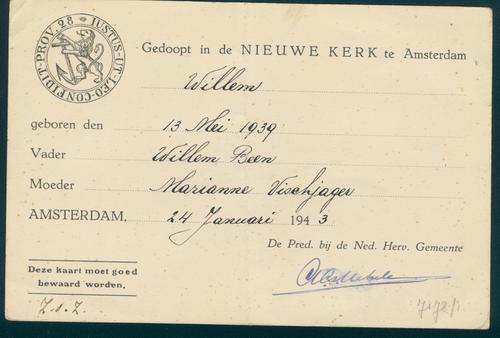 IUSTUS·UT·LEO·CONFIDIT·PROV 28
Gedoopt in de NIEUWE KERK te Amsterdam
Willem
geboren den 13 Mei 1939
Vader Willem Been
Moeder Marianne Vischjager
AMSTERDAM, 24 Januari 1943
De Pred. bij de Ned. Herv. Gemeente
Deze kaart moet goed
bewaard worden.
Z.O.Z.